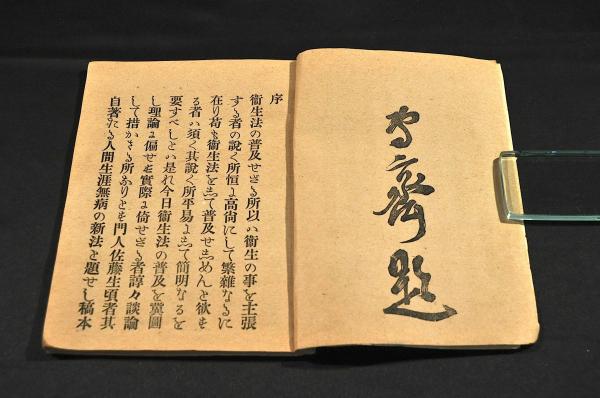 齊題
序
衞生法の普及せざる所以ハ衞生の事を主張
する者の說く所恒に高尙にして繁雜なるに
在り苟も衞生法をして普及せしめんと欲す
る者ハ須く其說く所平易にして簡明なるを
要すべしとハ是れ今日衞生法の普及を冀圖
し理論に偏せず實際に倚せざる者諄々談論
して措かざる所ありとも門人佐藤生頃者其
自著たる人間生涯無病の新法と題せし稿本